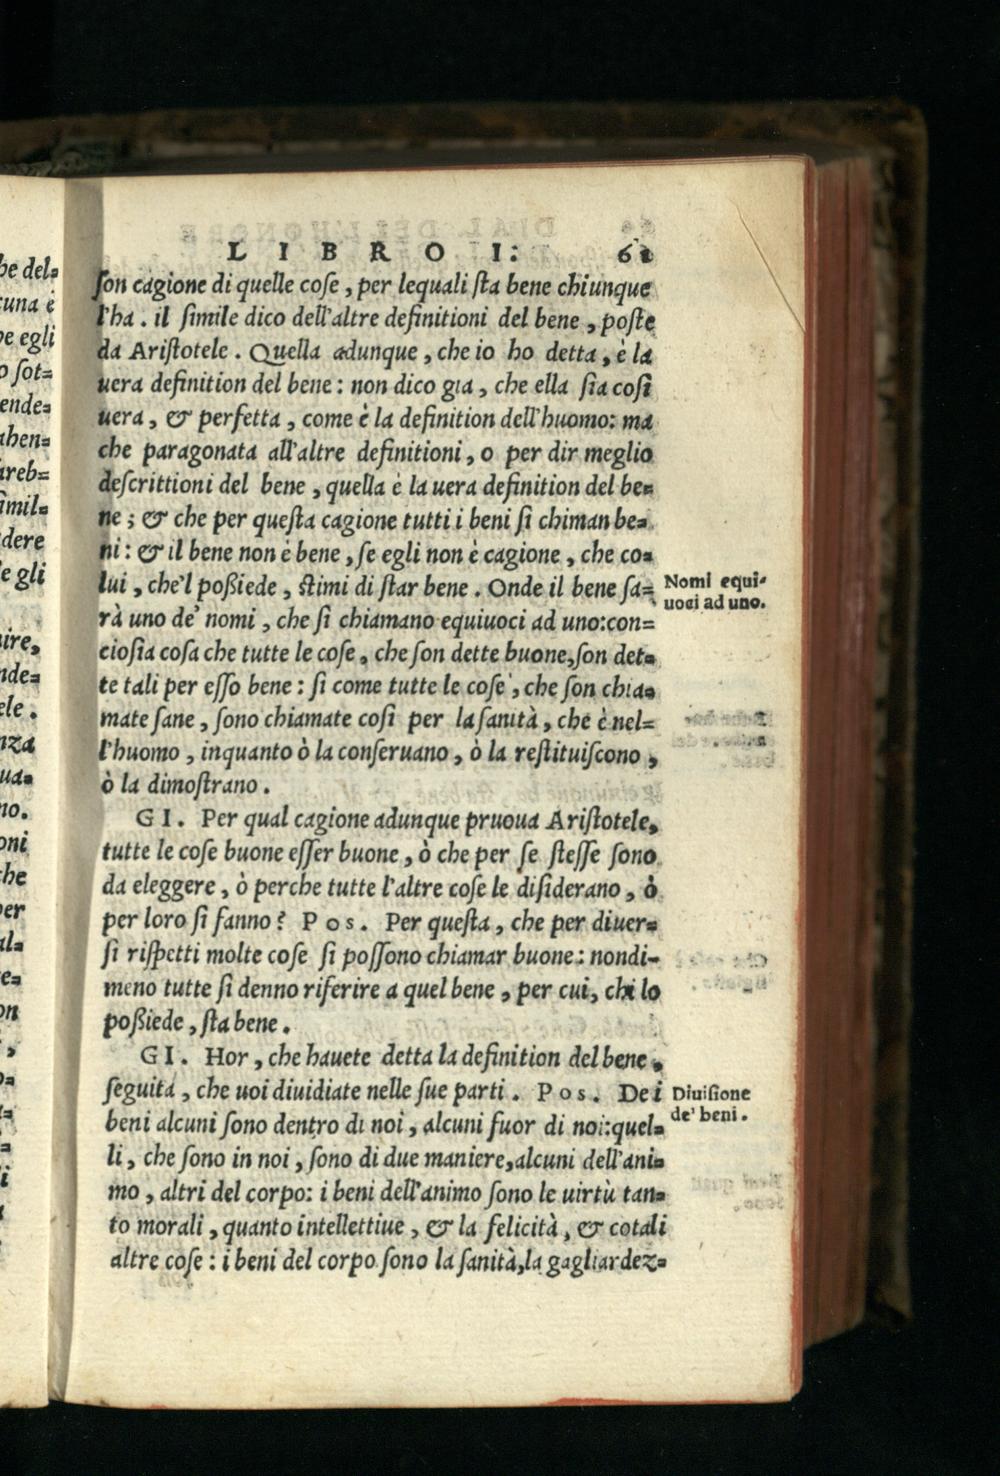 LIBRO I. 61
ſon cagione di quelle coſe, per lequali ſta bene chiunque
l'ha. il ſimile dico dell'altre definitioni del bene, poſte
da Ariſtotele. Quella adunque, che io ho detta, è la
uera definition del bene: non dico gia, che ella ſia coſi
uera, & perfetta, come è la definition dell'huomo: ma
che paragonata all'altre definitioni, o per dir meglio
deſcrittioni del bene, quella è la uera definition del be=
ne; & che per queſta cagione tutti i beni ſi chiman be=
ni: & il bene non è bene, ſe egli non è cagione, che co=
lui, che'l poßiede, ſtimi di ſtar bene. Onde il bene ſa=
rà uno de' nomi, che ſi chiamano equiuoci ad uno:con=
cioſia coſa che tutte le coſe, che ſon dette buone,ſon det=
te tali per eſſo bene: ſi come tutte le coſe, che ſon chia=
mate ſane, ſono chiamate coſi per la ſanità, che è nel=
l'huomo, inquanto ò la conſeruano, ò la reſtituiſcono,
ò la dimoſtrano.
GI. Per qual cagione adunque pruoua Ariſtotele,
tutte le coſe buone eſſer buone, ò che per ſe ſteſſe ſono
da eleggere, ò perche tutte l'altre coſe le diſiderano, ò
per loro ſi fanno? Pos. Per queſta, che per diuer=
ſi riſpetti molte coſe ſi poſſono chiamar buone: nondi-
meno tutte ſi denno riferire a quel bene, per cui, chi lo
poßiede, ſta bene.
GI. Hor, che hauete detta la definition del bene,
ſeguita, che uoi diuidiate nelle ſue parti. Pos. Dei
beni alcuni ſono dentro di noi, alcuni fuor di noi:quel=
li, che ſono in noi, ſono di due maniere,alcuni dell'ani=
mo, altri del corpo: i beni dell'animo ſono le uirtù tan=
to morali, quanto intellettiue, & la felicità, & cotali
altre coſe: i beni del corpo ſono la ſanità,la gagliardez=
Nomi equi-
uoci ad uno.
Diuiſione
de' beni.
he del=
cuna è
egli
ſot=
ende=